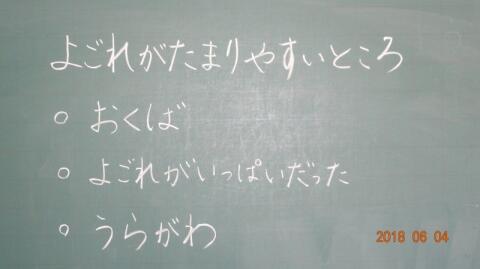 よごれがたまりやすいところ
○ おくば
○ よごれがいっぱいだった
○ うらがわ
2018 06 04